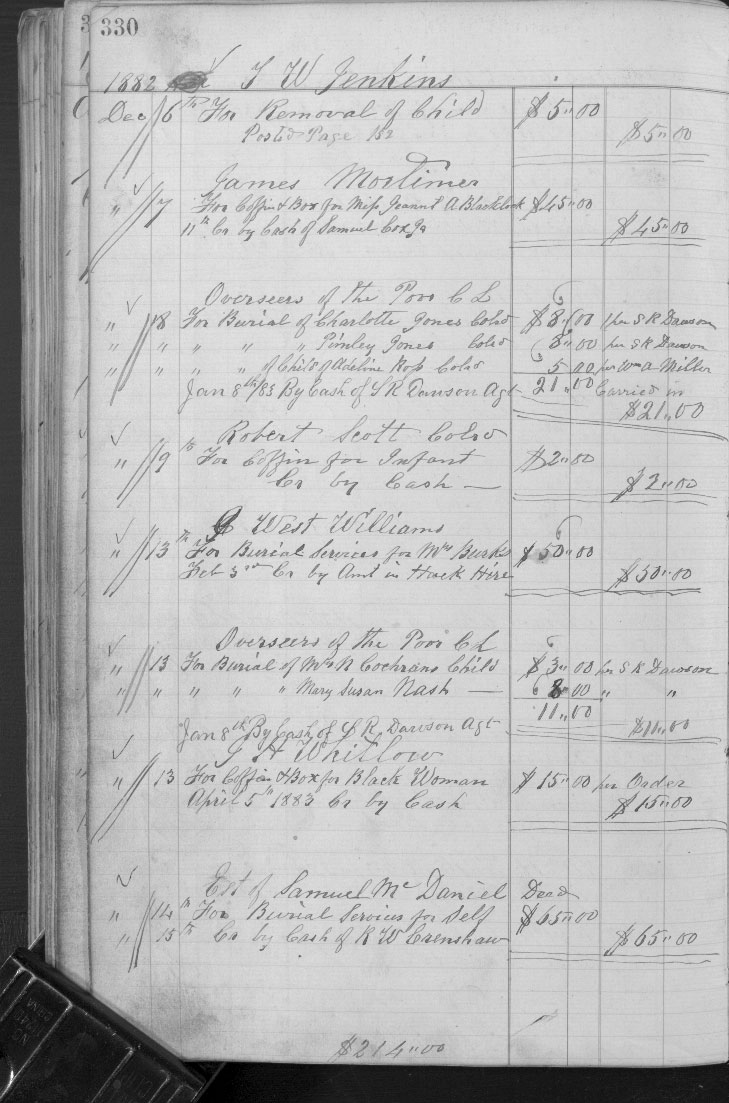 330
1882 T W Jenkins
Dec 6th For Removal of Child $5"00
Posted Page 152 $5"00
James Mortimer
" 7 For Coffin & Box for Miss Jeannt A Blacklock $45"00
11th Cr by Cash of Samuel Cox Ja $45"00
Overseers of the Poor C L
" 18 For Burial of Charlotte Jones Cold $8"00 per S R Dawson
" " " " " Pinley Jones Cold 8"00 per S R Dawson
" " " " of Child of Adeline Ross Cold 5 00 per Wm A Miller
Jan 8th/83 By Cash of S R Dawson Agt 21"00 Carried in
$21"00
Robert Scott Cold
" 9th For Coffin for Infant $2"00
Cr by Cash — $2"00
G West Williams
" 13th For Burial Services for Mrs Burks $50"00
Feb 3rd Cr by Amt in Hack Hire $50"00
Overseers of the Poor C L
" 13 For Burial of Mrs N Cochrans Child $3"00 per S R Dawson
" " " " " Mary Susan Nash — 8"00 " "
11"00
Jan 8th By Cash of S R Dawson Agt $11"00
G H Whitlow
" 13 For Coffin & Box for Black Woman $15"00 per Order
April 5th 1883 Cr by Cash $15"00
Est of Samuel Mc Daniel Dead
" 14th For Burial Services for Self $65"00
" 15th Cr by Cash of R W Crenshaw $65"00
$214"00